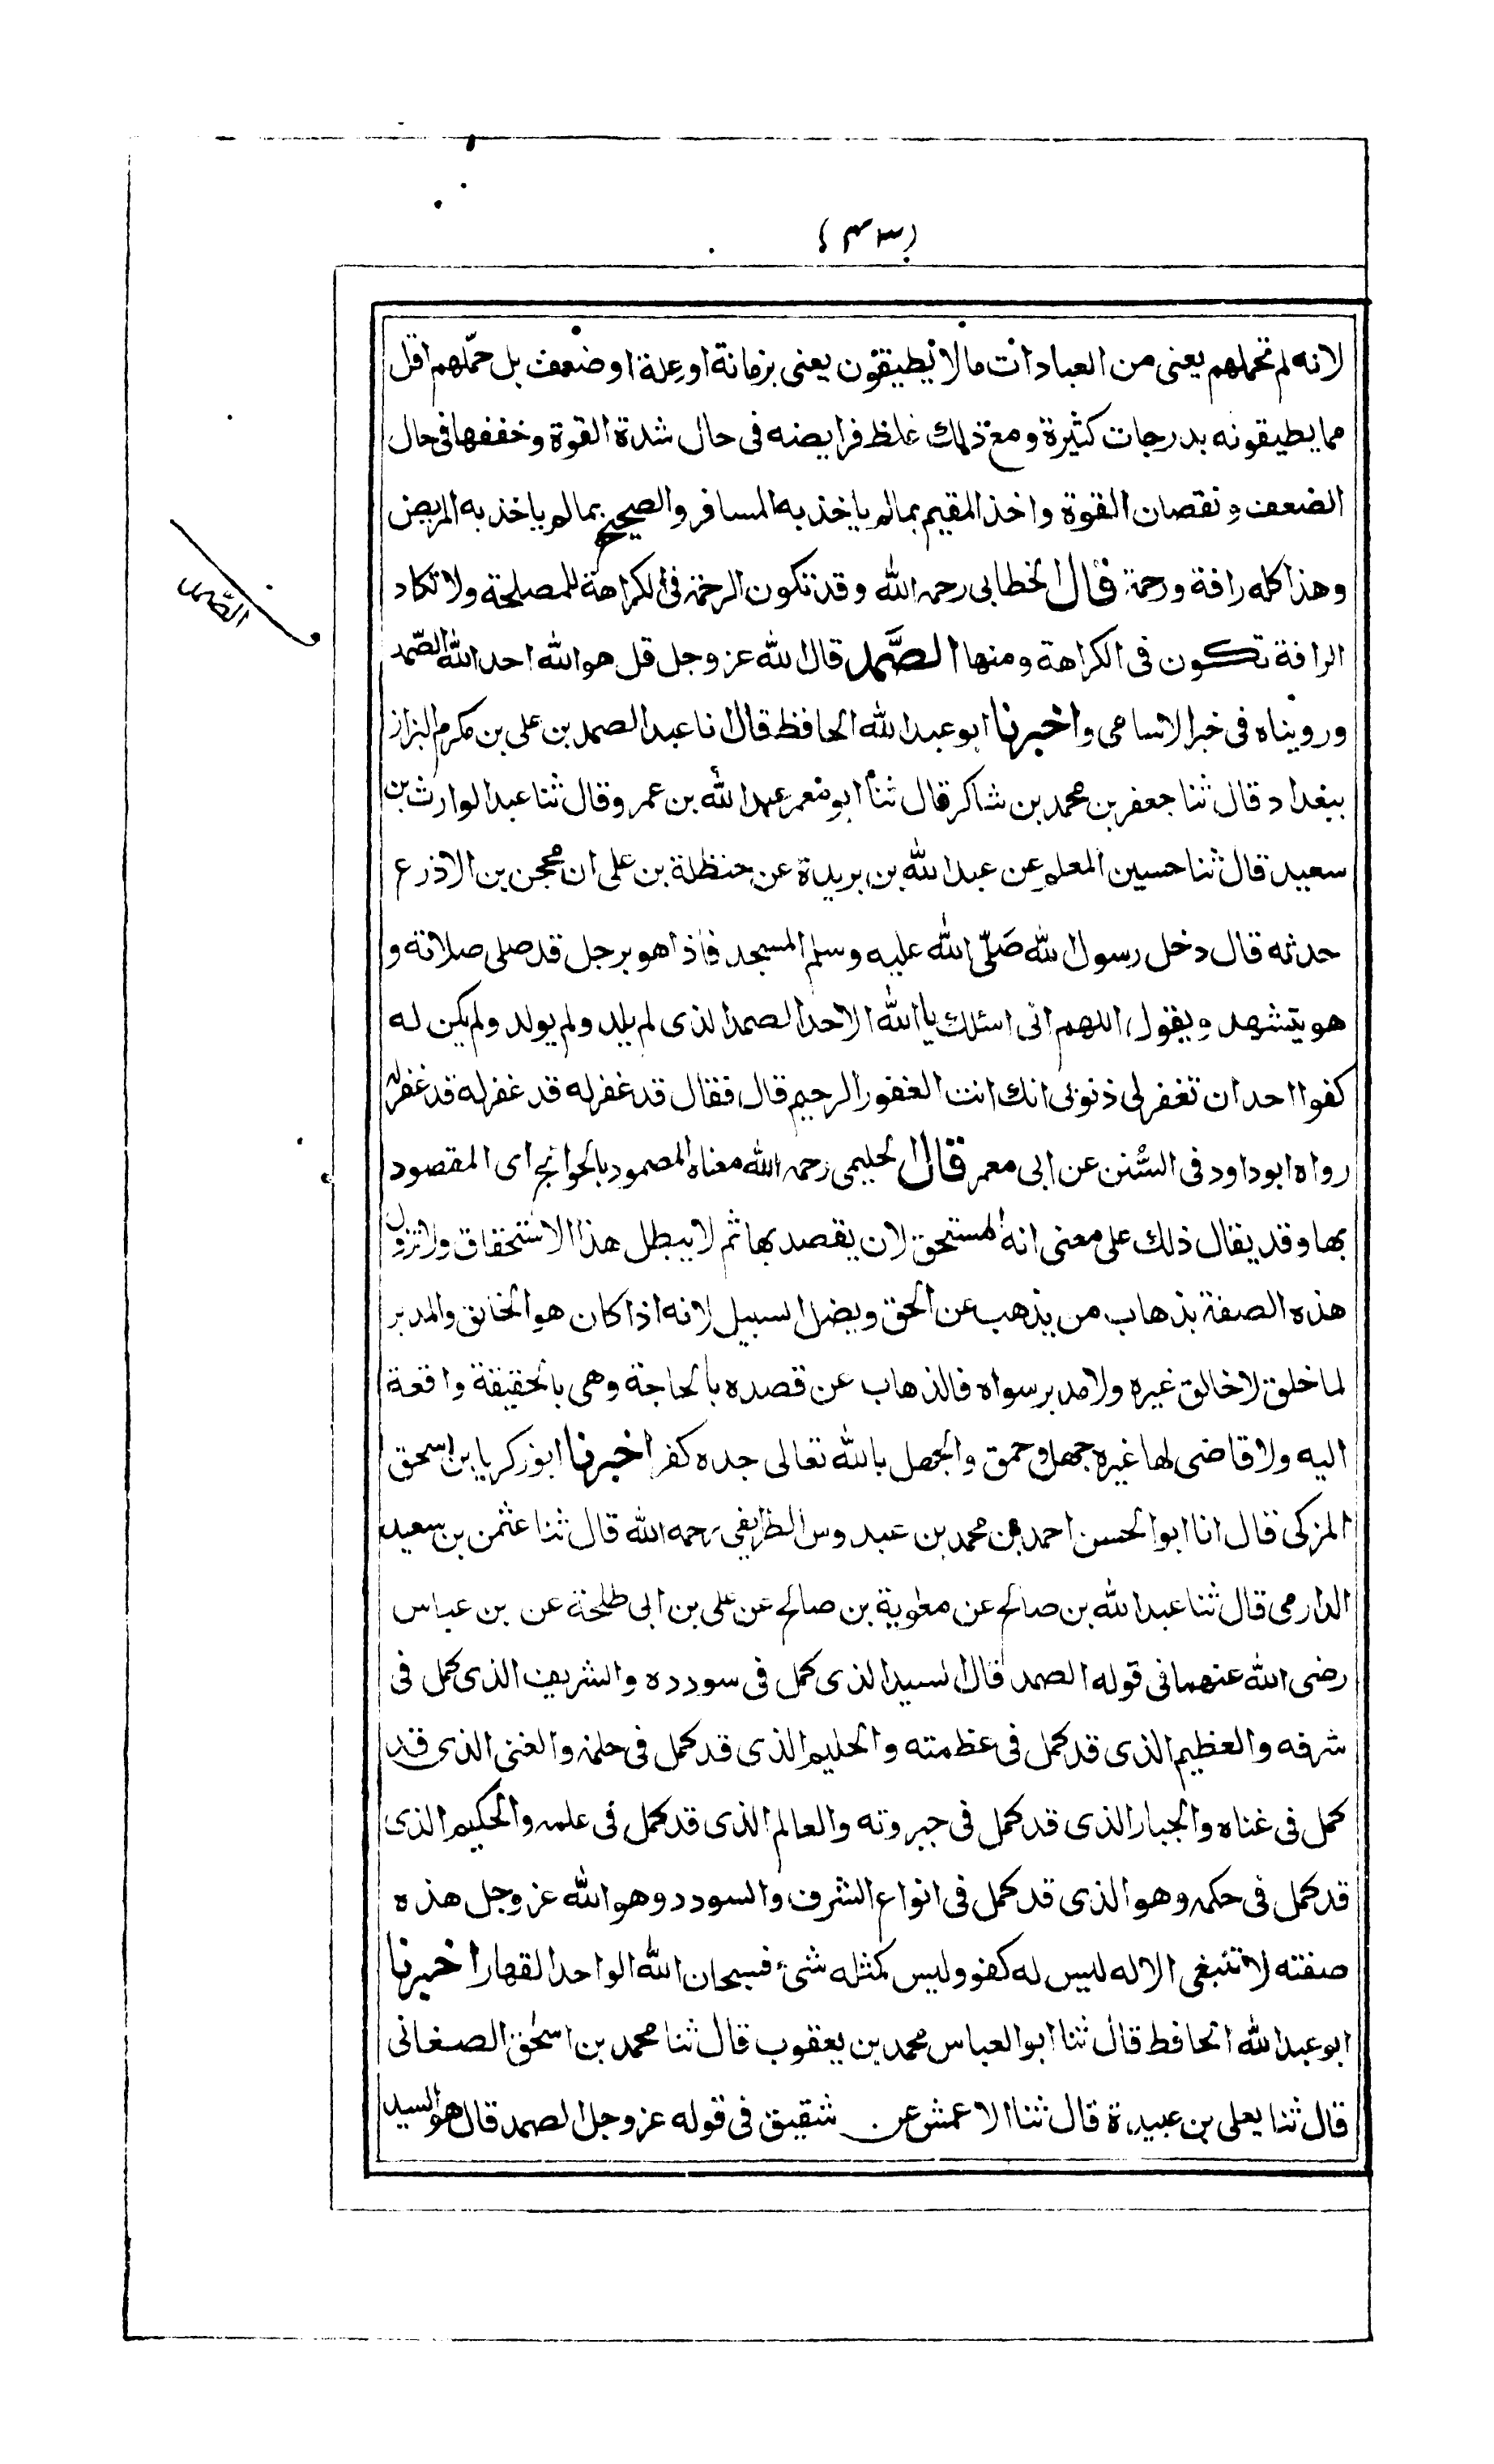 (٤٣)
لانه لم تحملهم يعنى من العبادات ما لا يطيقون يعنى بزمانة او علة او ضعف بل حمّلهم اقل
مما يطيقونه بدرجات كثيرة ومع ذلك غلظ فرايضه فى حال شدة القوة وخففها فى حال
الضعف و نقصان القوة واخذ المقيم بمالم ياخذ به المسافر والصحيح بمالم ياخذ به المريض
وهذا كله رافة ورحمة قال الخطابى رحمه الله وقد تكون الرحمة فى الكراهة للمصلحة ولا تكاد
الرافة تكون فى الكراهة ومنها الصَّمد قال الله عز وجل قل هو الله احد الله الصّمد
ورويناه فى خبر الاسامى واخبرنا ابو عبد الله الحافظ قال انا عبد الصمد بن على بن مكرم البزاز
ببغداد قال ثنا جعفر بن محمد بن شاكر قال ثنا ابو معمر عبد الله بن عمر وقال ثنا عبد الوارث بن
سعيد قال ثنا حسين المعلم عن عبد الله بن بريدة عن حنظلة بن على ان محجن بن الاذرع
حدثه قال دخل رسول الله صَلّى الله عليه وسلم المسجد فاذا هو برجل قد صلى صلاته و
هو يتشهد و يقول اللهم انى اسئلك يا الله الاحد الصمد الذى لم يلد ولم يولد ولم يكن له
كفوا احد ان تغفر لى ذنوبى انك انت الغفور الرحيم قال فقال قد غفر له قد غفر له قد غفر له
رواه ابو داود فى السُّنن عن ابى معمر قال الحليمى رحمه الله معناه المصمود بالحوائج اى المقصود
بها وقد يقال ذلك على معنى انه المستحق لان يقصد بها ثم لا يبطل هذا الاستحقاق ولا تزول
هذه الصفة بذهاب من يذهب عن الحق ويضل السبيل لانه اذا كان هو الخالق والمدبر
لما خلق لا خالق غيره ولا مدبر سواه فالذهاب عن قصده بالحاجة وهى بالحقيقة واقعة
اليه ولا قاضى لها غيره جهل وحمق والجهل بالله تعالى جده كفر اخبرنا ابو زكريا بن اسحق
المزكى قال انا ابو الحسن احمد بن محمد بن عبدوس الطرايفى رحمه الله قال ثنا عثمن بن سعيد
الدارمى قال ثنا عبد الله بن صالح عن معوية بن صالح عن على بن ابى طلحة عن بن عباس
رضى الله عنهما فى قوله الصمد قال السيد الذى كمل فى سودده والشريف الذى كمل فى
شرفه والعظيم الذى قد كمل فى عظمته والحليم الذى قد كمل فى حلمه والغنى الذى قد
كمل فى غناه والجبار الذى قد كمل فى جبروته والعالم الذى قد كمل فى علمه والحكيم الذى
قد كمل فى حكمه وهو الذى قد كمل فى انواع الشرف والسودد وهو الله عز وجل هذه
صفته لا تنبغى الا له ليس له كفو وليس كمثله شئ فسبحان الله الواحد القهار اخبرنا
ابو عبد الله الحافظ قال ثنا ابو العباس محمد بن يعقوب قال ثنا محمد بن اسحق الصغانى
قال ثنا يعلى بن عبيدة قال ثنا الاعمش عن شقيق فى قوله عز وجل الصمد قال هو السيد
الصَّمد